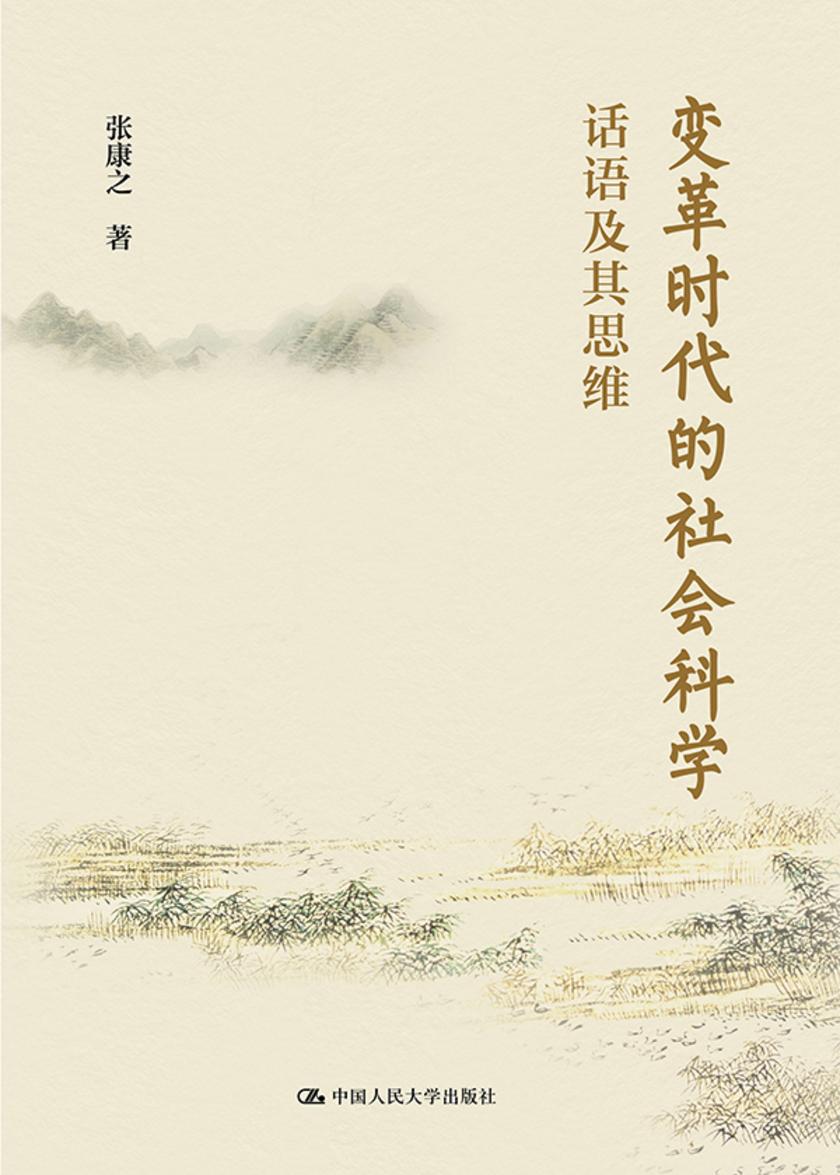 变革时代的社会科学
话语及其思维
张康之 著
中国人民大学出版社